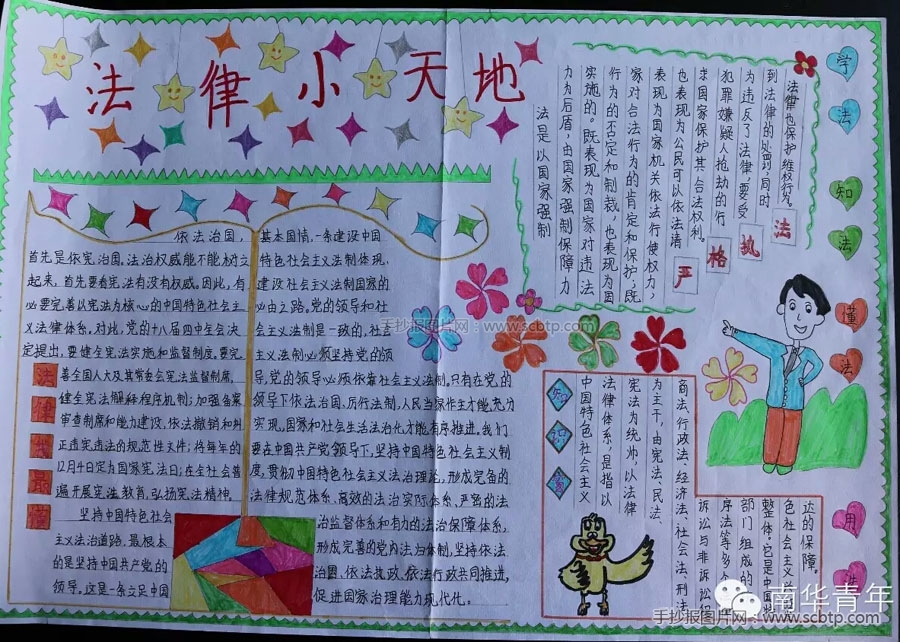 法律小天地
依法治国,
首先是依宪治国,法治权威能不能树立
起来,首先要看宪法有没有权威。因此,有
必要完善以宪法为核心的中国特色社会主
义法律体系,对此,党的十八届四中全会决
定提出,要健全宪法实施和监督制度,要完
善全国人大及其常委会宪法监督制席,
健全宪法解释程序机制;加强备案
审查制席和能力建设,依法撤销和
正违宪违法的规范性文件;将每年的
12月4日定为国家宪法日;在全社会普
遍开展宪法教育,弘扬宪法精神。
坚持中国特色社会
主义法治道路,最根本
的是坚持中国共产党的
领导。这是一条立足中国
基本国情,一条建设中国
特色社会主义法制体现,
建设社会主义法制国家的
必由之路,党的领导和社
会主义法制是一致的,社会
主义法制必须坚持党的领
导,党的领导必须依靠社会主义法制,只有在党的
领导下依法治国、厉行法制,人民当家作主才能充分
实现,国家和社会生活法治化才能有序推进,我们
要在中国共产党领导下,坚持中国特色社会主义制
度,贯彻中国特色社会主义法治理论,形成完备的
法律规范体系,高效的法治实际体系,严密的法
治监督体系和有力的法治保障体系,
形成完善的党内法归体制,坚持依法
治国、依法执政、依法行政共同推进,
促进国家治理能力现代化。
法律
最
法是以国家强制
力为后盾,由国家强制保障力
实施的。既表现为国家对违法
行为的否定和制裁,也表现为国
家对合法行为的肯定和保护;既
表现为国家机关依法行使权力,
也表现为公民可以依法请
求国家保护其合法权利。
犯罪嫌疑人抢劫的行
为违反了法律,要受
到法律的处罚,同时
法律也保护维权行为。
严格执法
学法知法懂法用法
知识窗
中国特色社会主义
法律体系,是指以
宪法为统帅,以法律
为主干,由宪法、民法、
商法、行政法、经济法、社会法、刑法
诉讼与非诉讼程
序法等多个
部门组成的
整体。它是中国特
色社会主义
达的保障。
南华青年
手抄报图片网:www.scbtp.com
手抄报图片网:www.scbtp.com